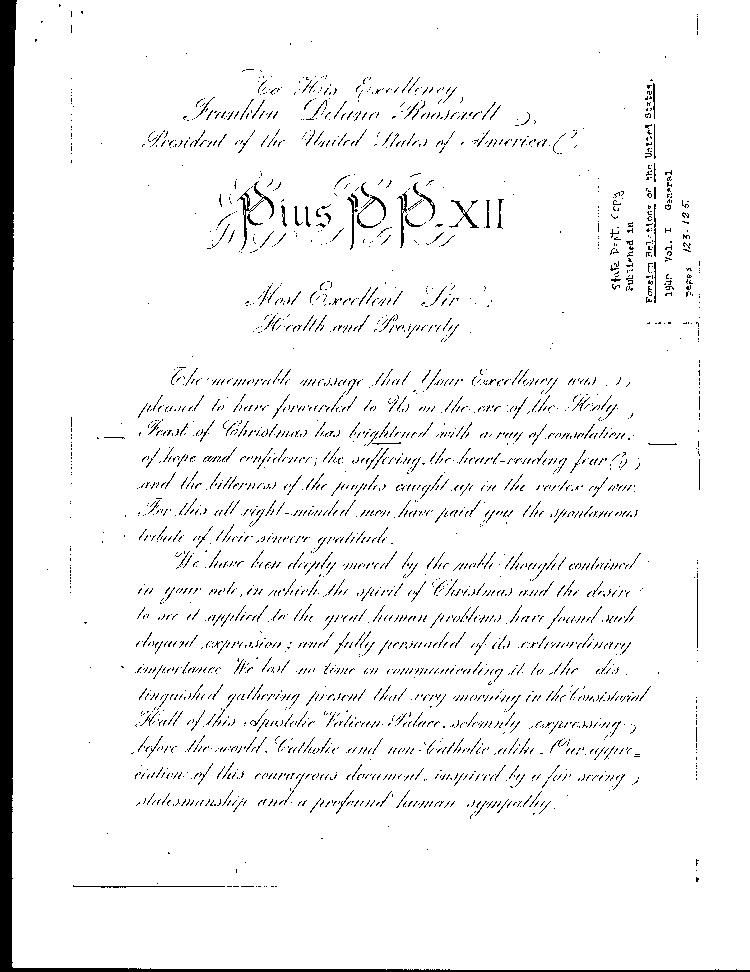 To His Excellency
Franklin Delano Roosevelt
President of the United States of America
Pius PP. XII
Most Excellent Sir
Health and Prosperity
The memorable message that Your Excellency was
pleased to have forwarded to Us on the eve of the Holy
Feast of Christmas has brightened with a ray of consolation,
of hope and confidence, the suffering, the heart-rending fear
and the bitterness of the peoples caught up in the vortex of war.
For this all right-minded men have paid you the spontaneous
tribute of their sincere gratitude.
We have been deeply moved by the noble thought contained
in your note, in which the spirit of Christmas and the desire
to see it applied to the great human problems have found such
eloquent expression; and fully persuaded of its extraordinary
importance We lost no time in communicating it to the dis
tinguished gathering present that very morning in the Consistorial
Hall of this Apostolic Vatican Palace, solemnly expressing
before the world, Catholic and non-Catholic alike, Our appre=
ciation of this courageous document, inspired by a far seeing
statesmanship and a profound human sympathy.
State Dept. Copy
Published in
Foreign Relations of the United States,
1940 Vol. I General
pages 123-126.